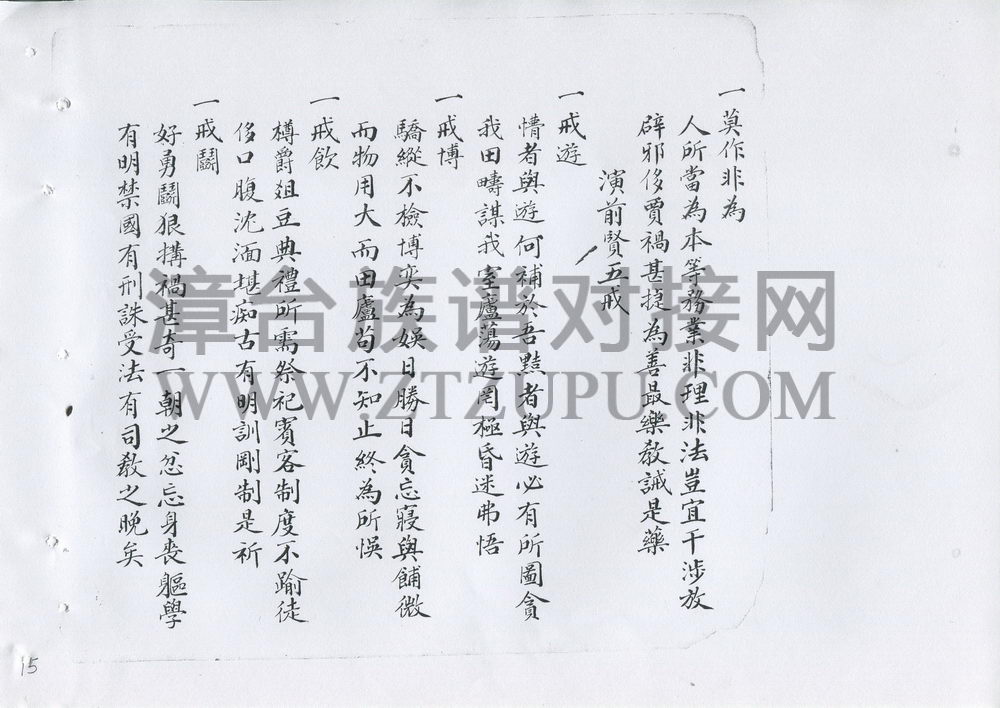 一莫作非為
人所當為本等務業非理非法豈宜干涉放
辟邪侈賈禍甚捷為善最樂教誡是藥
演前賢五戒
一戒遊
懵者與遊何補於吾黠者與遊必有所圖貪
我田疇謀我室廬蕩遊罔極昏迷弗悟
一戒博
驕縱不檢博奕為娛日勝日貪忘寢與餔微
而物用大而田廬苟不知止終為所悞
一戒飲
樽爵俎豆典禮所需祭祀賓客制度不踰徒
侈口腹沈湎堪痴古有明訓剛制是祈
一戒鬭
好勇鬭狠搆禍甚奇一朝之忿忘身喪軀學
有明禁國有刑誅受法有司教之晚矣
15
漳台族谱对接网
WWW.ZTZUPU.COM